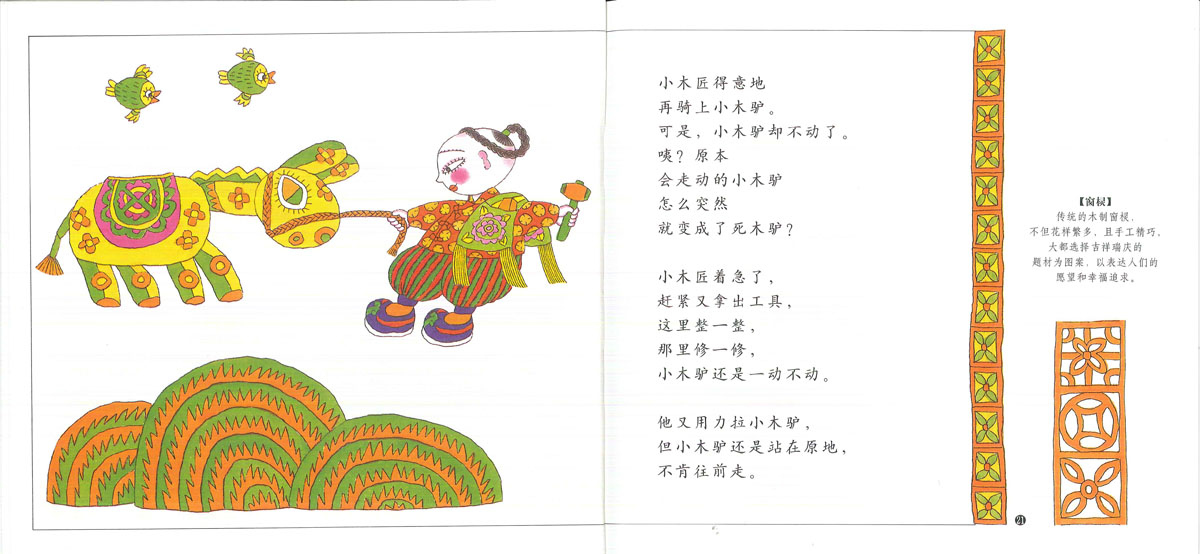 小木匠得意地
再骑上小木驴。
可是，小木驴却不动了。
咦？原本
会走动的小木驴
怎么突然
就变成了死木驴？
小木匠着急了，
赶紧又拿出工具，
这里整一整，
那里修一修，
小木驴还是一动不动。
他又用力拉小木驴，
但小木驴还是站在原地，
不肯往前走。
【窗棂】
传统的木制窗棂，
不但花样繁多，且手工精巧，
大都选择吉祥瑞庆的
题材为图案，以表达人们的
愿望和幸福追求。
21